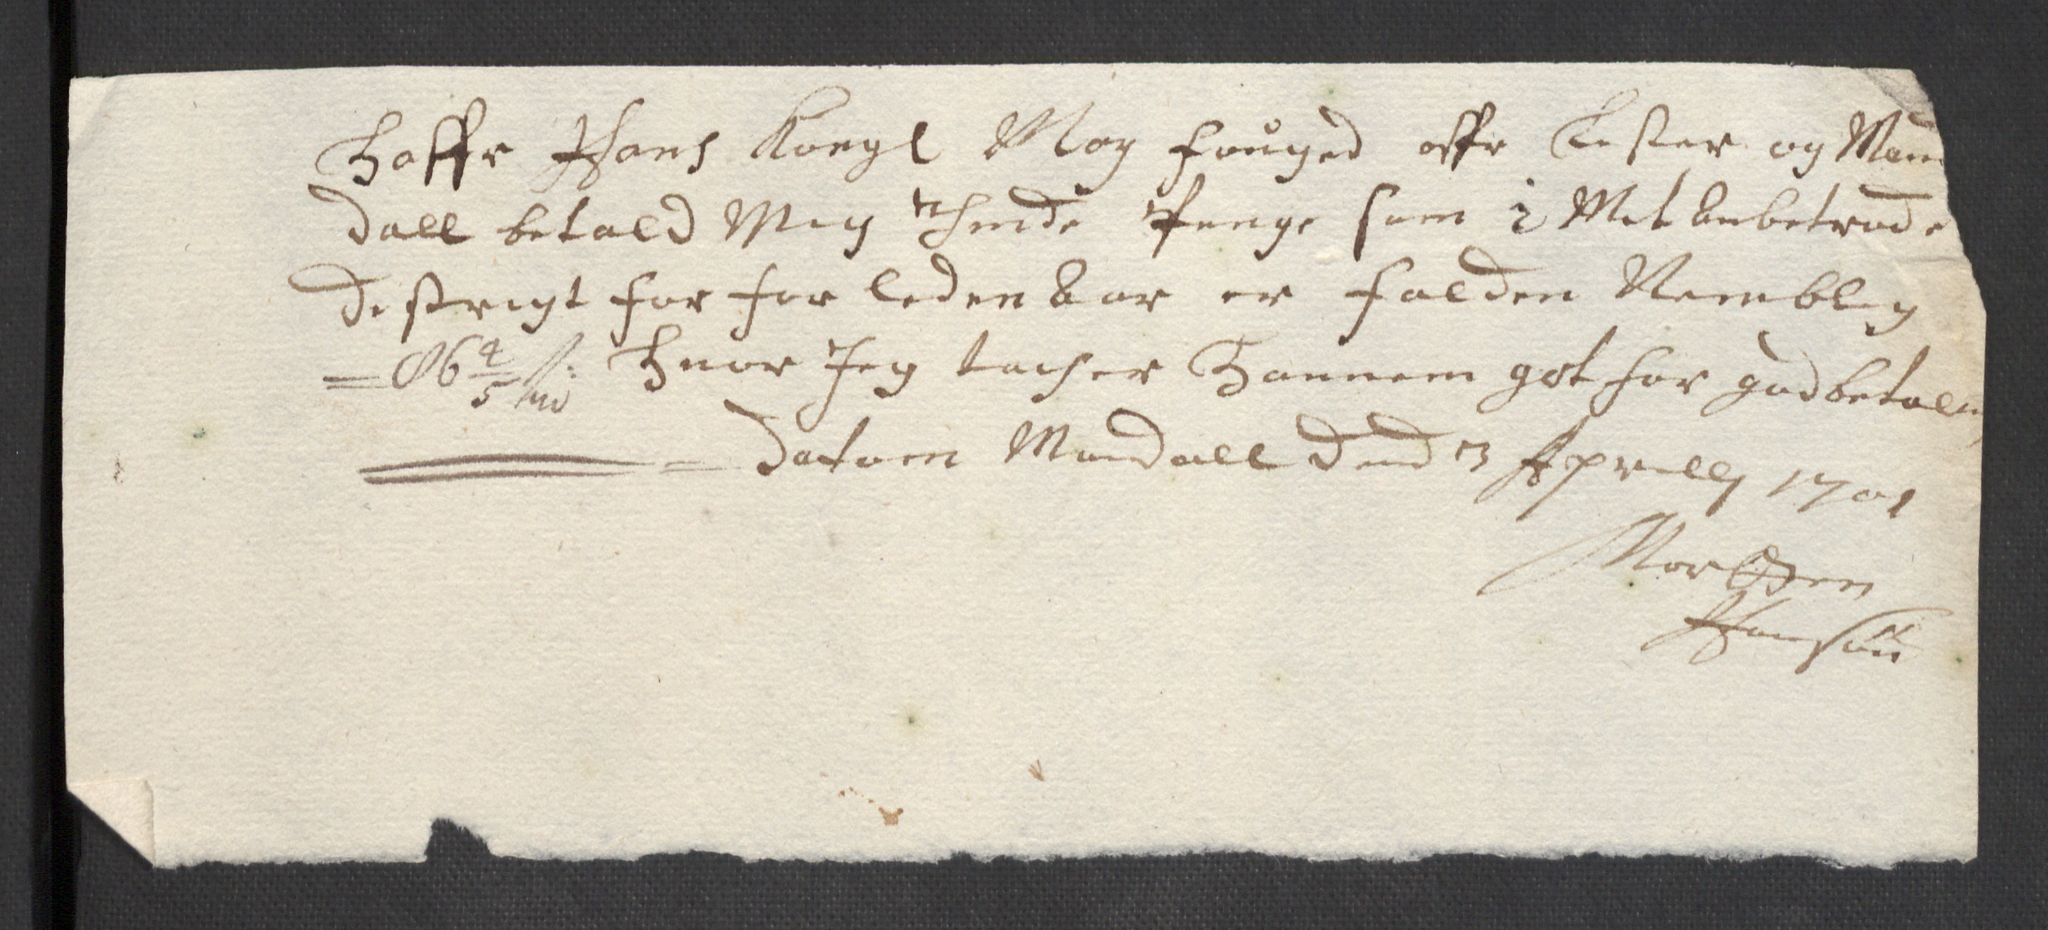 Haffr Hans Kongl May fouged offr Lister og Man
dall betald Mig Thinde Penge som i Mit Anbetrode
Destrigt for for leden Aar er falden Nemblig
= 86 4/5 Huor Jeg tacher Hannem got for god betaling
= datom Mandall Dend 3 Aprilly 1701
Mortten
Hansøn